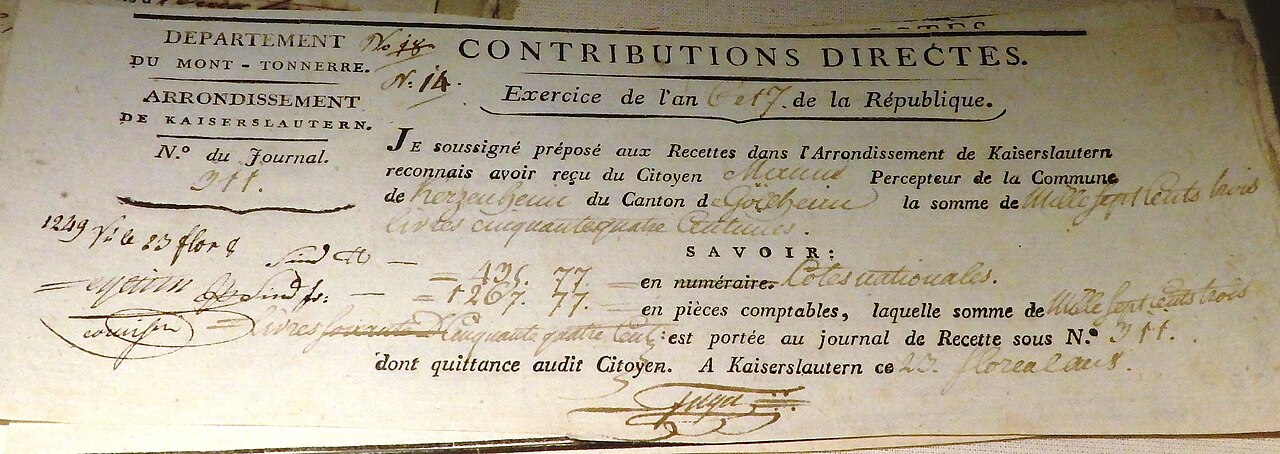 DEPARTEMENT
DU MONT-TONNERRE.
ARRONDISSEMENT
DE KAISERSLAUTERN.
N.° du Journal.
311.
No 18
N. 14.
CONTRIBUTIONS DIRECTES.
Exercice de l'an 6 et 7. de la République.
JE soussigné préposé aux Recettes dans l'Arrondissement de Kaiserslautern
reconnais avoir reçu du Citoyen Percepteur de la Commune
de Kerzenheim du Canton de Göllheim la somme de Mille sept cents trois
livres cinquante quatre Centimes.
SAVOIR:
1249 le 23 flor 8
= 435. 77. en numéraire. Cotes nationales.
= 1267. 77. en pièces comptables, laquelle somme de Mille sept cents trois
livres Cinquante quatre Cent: est portée au journal de Recette sous N.° 311.
dont quittance audit Citoyen. A Kaiserslautern ce 23. floreal an 8.